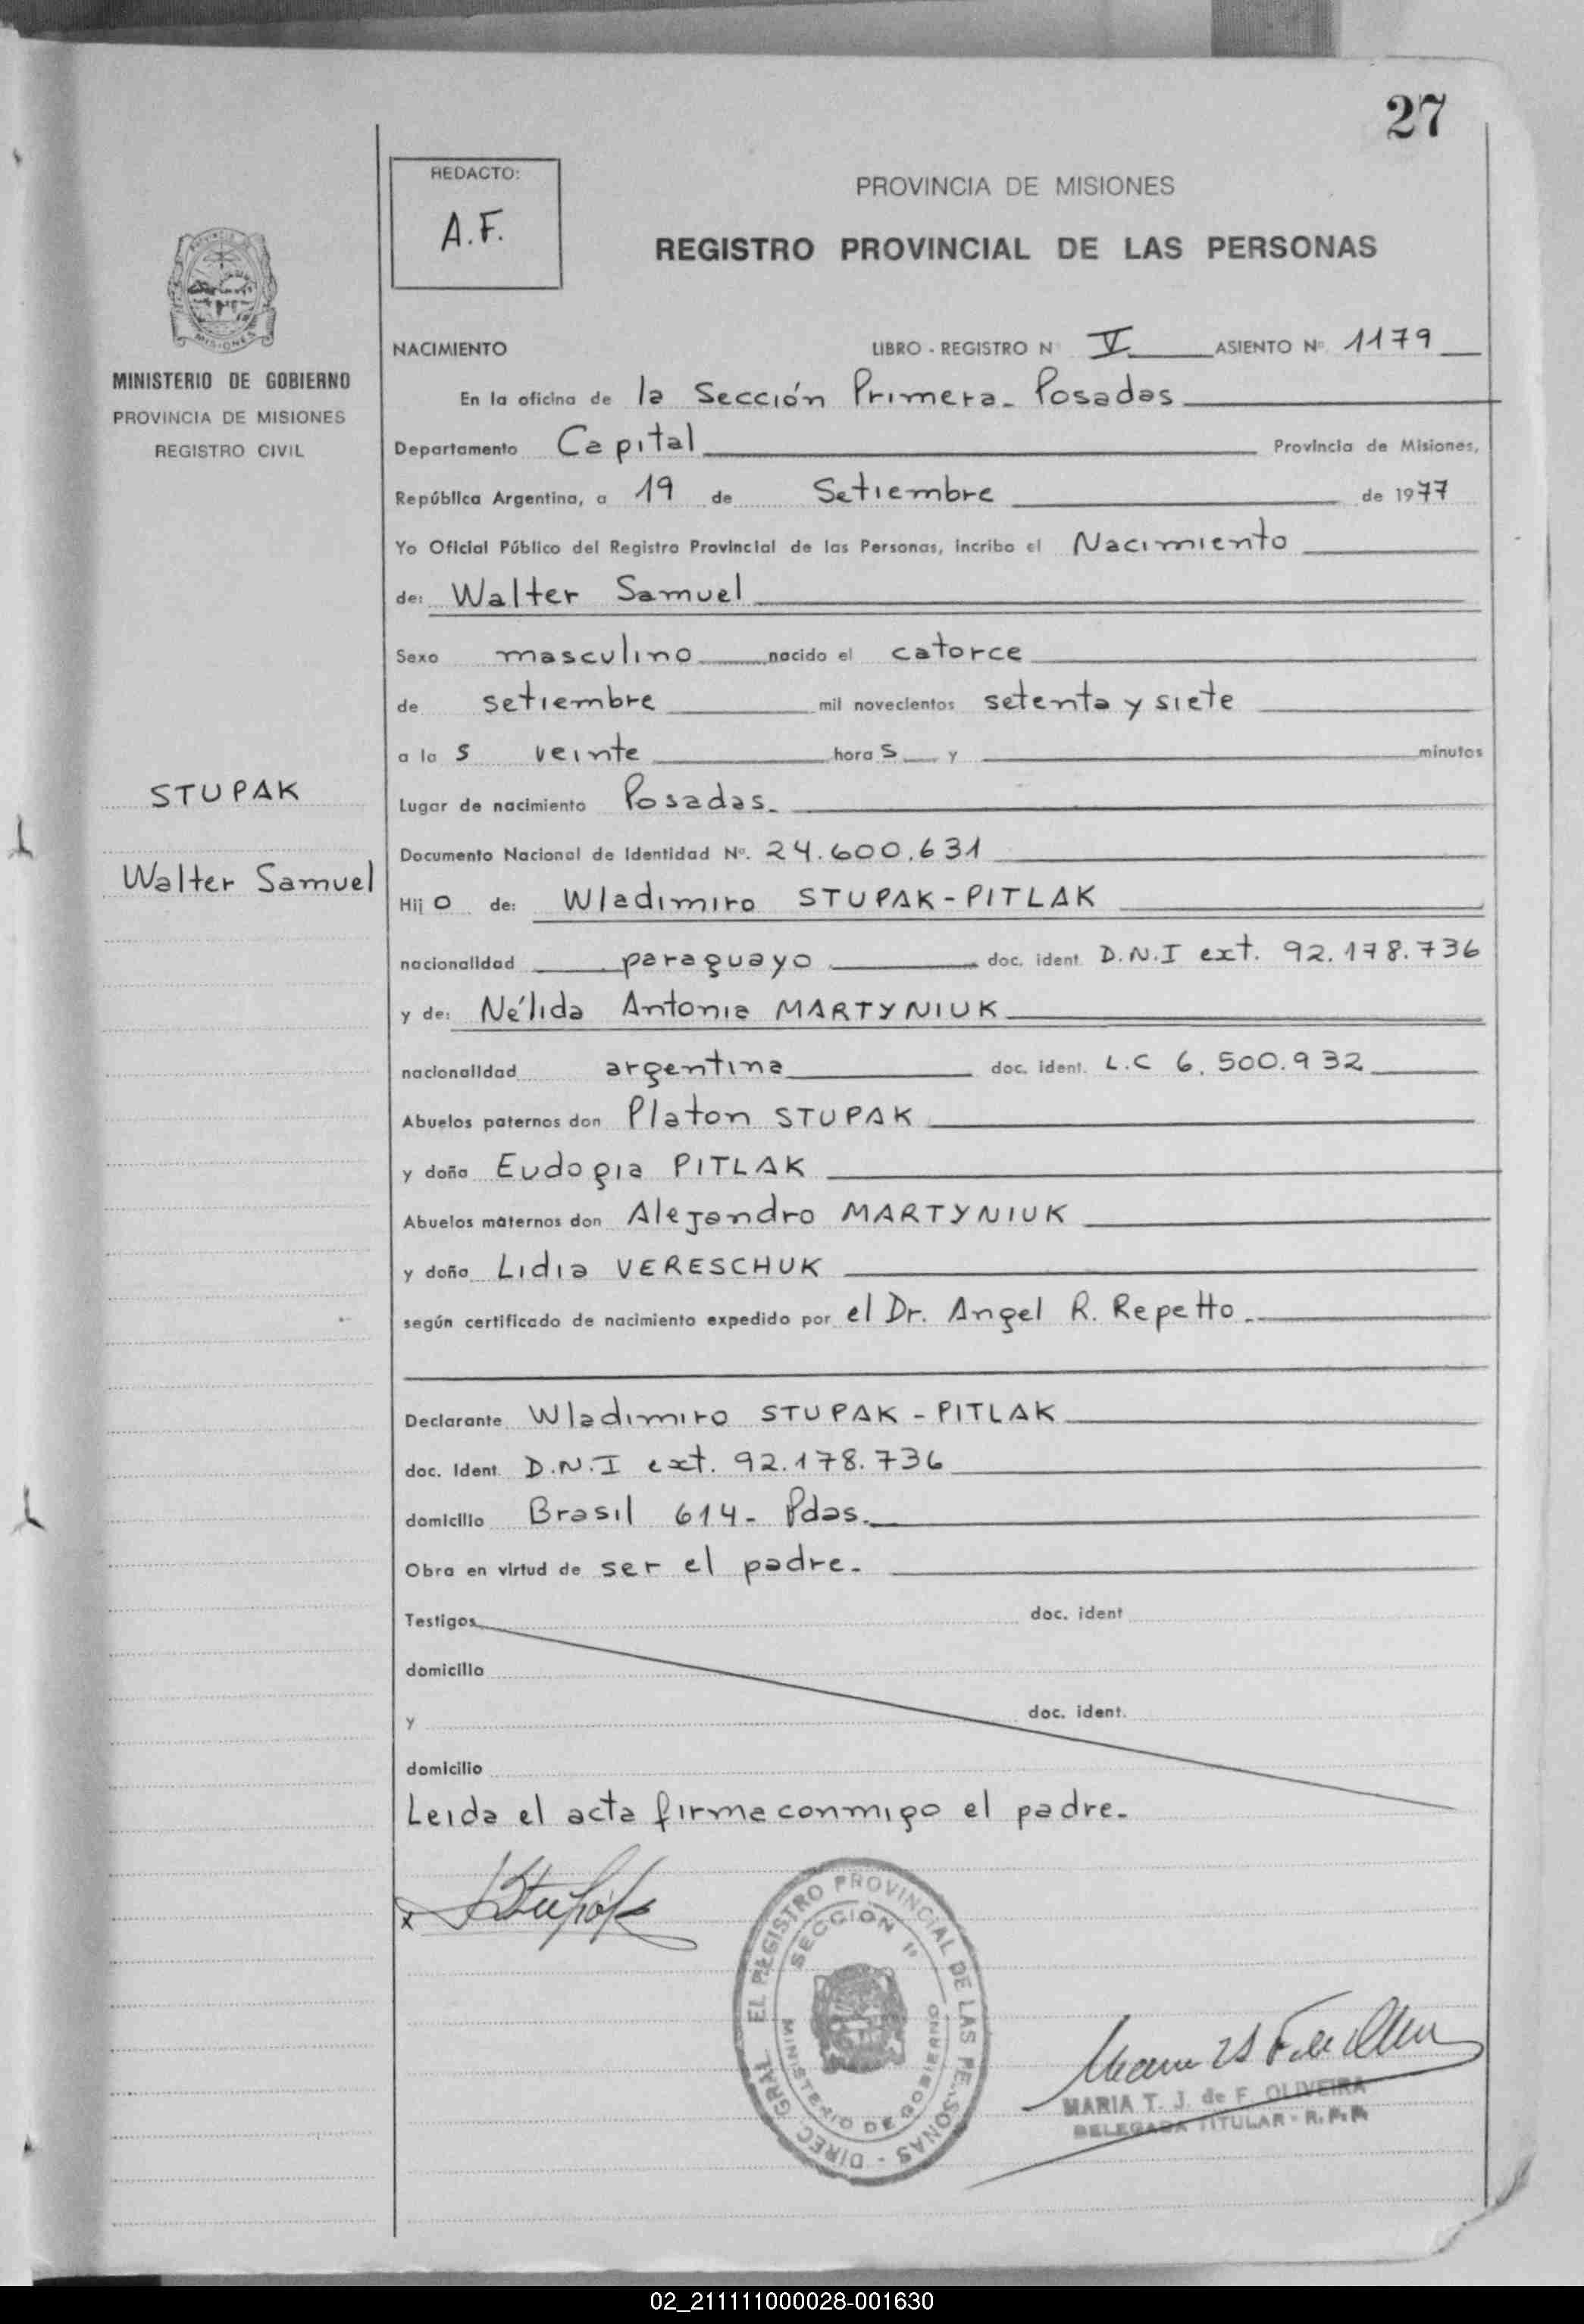 27
REDACTO:
A.F.
PROVINCIA DE MISIONES
REGISTRO PROVINCIAL DE LAS PERSONAS
MISIONES
MINISTERIO DE GOBIERNO
PROVINCIA DE MISIONES
REGISTRO CIVIL
STUPAK
Walter Samuel
NACIMIENTO LIBRO - REGISTRO N° V ASIENTO N° 1179
En la oficina de la Sección Primera - Posadas
Departamento Capital Provincia de Misiones,
República Argentina, a 19 de Setiembre de 1977
Yo Oficial Público del Registro Provincial de las Personas, incribo el Nacimiento
de: Walter Samuel
Sexo masculino nacido el catorce
de setiembre mil novecientos setenta y siete
a las veinte horas y minutos
Lugar de nacimiento Posadas.
Documento Nacional de Identidad Nº. 24.600.631
Hijo de: Wladimiro STUPAK-PITLAK
nacionalidad paraguayo doc. ident. D.N.I ext. 92.178.736
y de: Nélida Antonia MARTYNIUK
nacionalidad argentina doc. ident. L.C 6.500.932
Abuelos paternos don Platon STUPAK
y doña Eudogia PITLAK
Abuelos maternos don Alejandro MARTYNIUK
y doña Lidia VERESCHUK
según certificado de nacimiento expedido por el Dr. Angel R. Repetto.
Declarante Wladimiro STUPAK - PITLAK
doc. Ident. D.N.I ext. 92.178.736
domicilio Brasil 614 - Pdas.
Obra en virtud de ser el padre.
Testigos doc. ident
domicilio
y doc. ident.
domicilio
Leida el acta firma conmigo el padre.
x Stupak
DIREC. GRAL. EL REGISTRO PROVINCIAL DE LAS PERSONAS -
SECCION 1ª
MINISTERIO DE GOBIERNO
MARIA T. J. de F. OLIVEIRA
DELEGADA TITULAR - R.P.P.
02_211111000028-001630